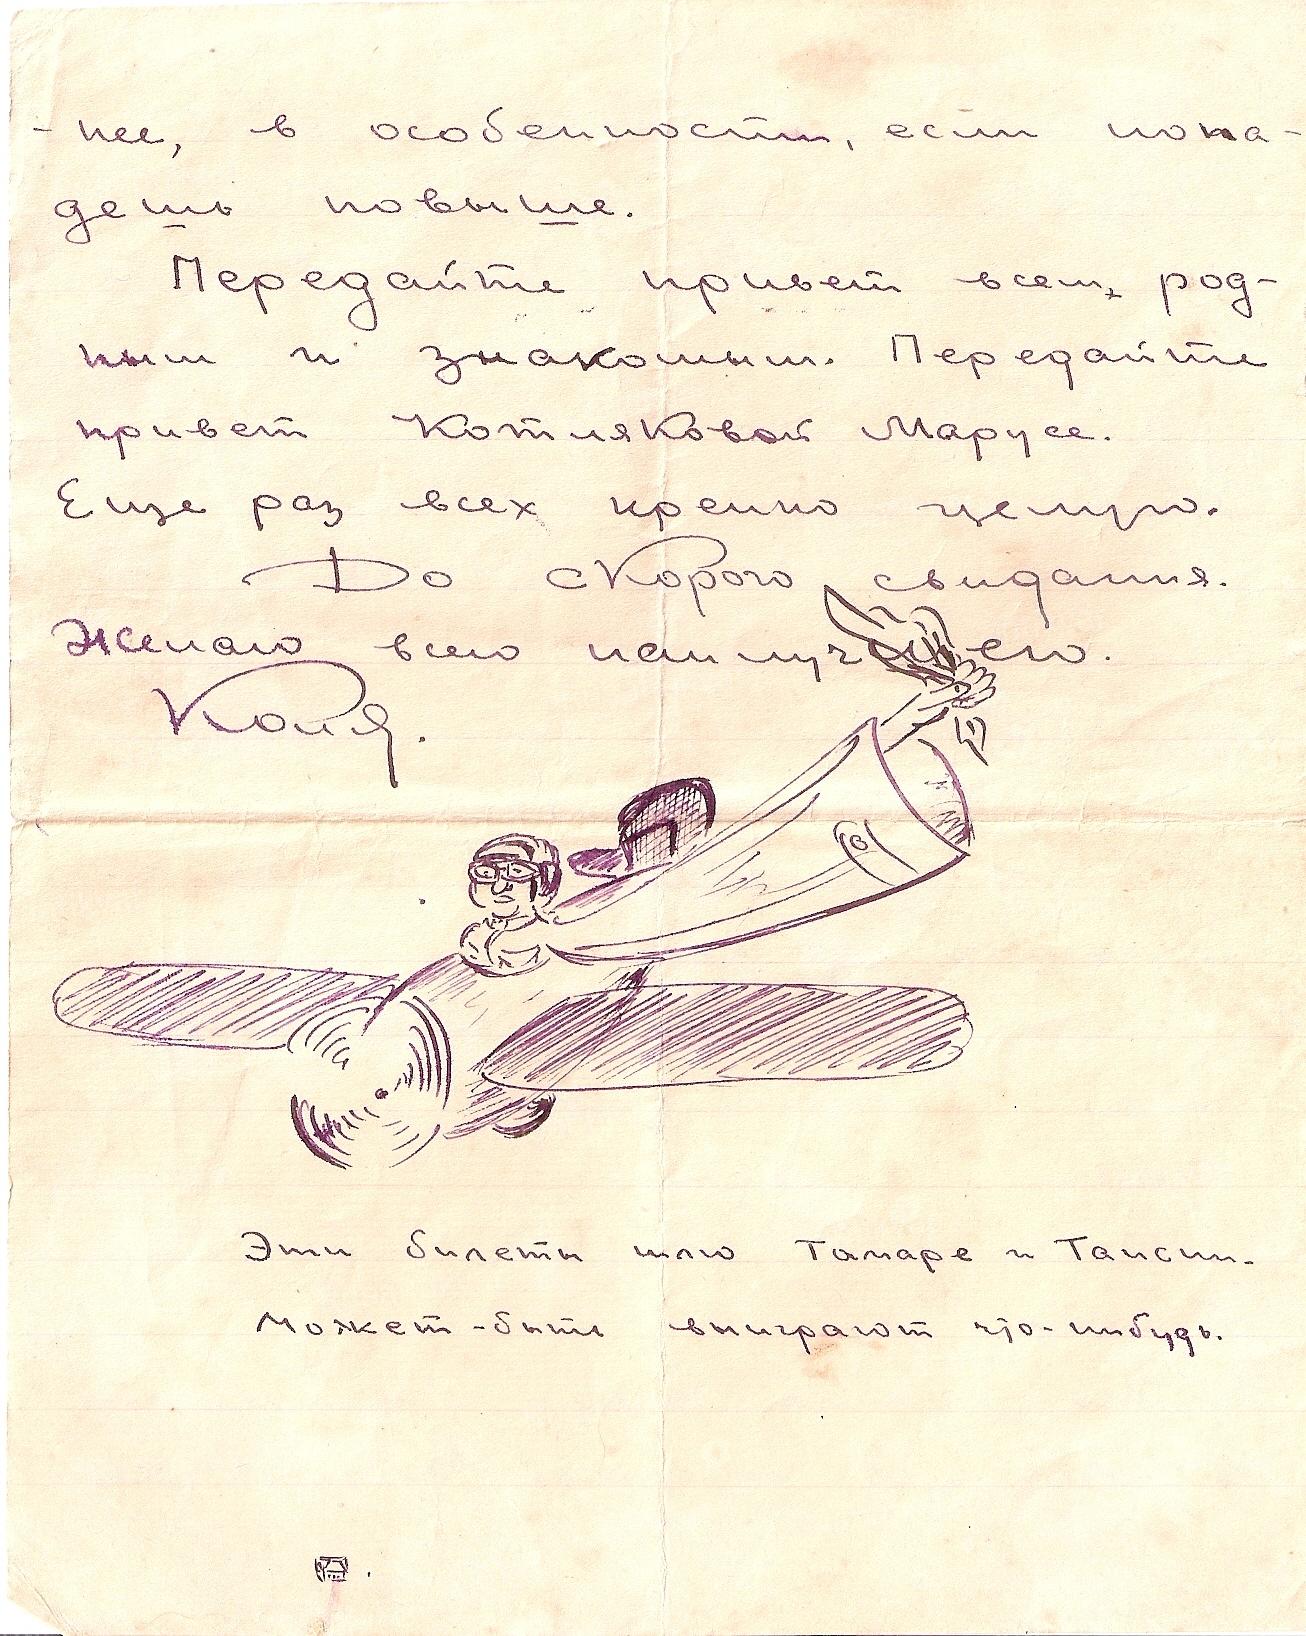 -нее, в особенности, если попа-
дешь повыше.
Передайте привет всем, род-
ным и знакомым. Передайте
привет Котляковой Марусе.
Еще раз всех крепко целую.
До скорого свидания.
Желаю всего наилучшего.
Коля.
Эти билеты шлю Тамаре и Таисии.
Может-быть выиграют что-нибудь.